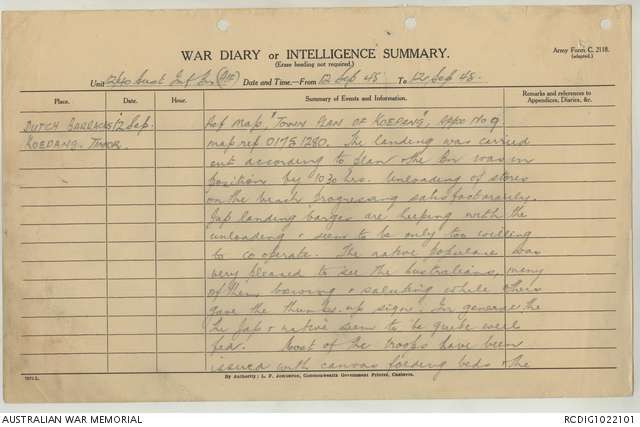 Army Form C. 2118.
(adapted.)
WAR DIARY or INTELLIGENCE SUMMARY.
(Erase heading not required.)
Unit 2/40 Aust Inf Bn (AIF) Date and Time—From 12 Sep 45 To 12 Sep 45.
Place. Date. Hour. Summary of Events and Information. Remarks and references to Appendices, Diaries, &c.
DUTCH BARRACKS 12 Sep. Ref Map, "TOWN PLAN OF KOEPANG", Appx No 9
KOEPANG. TIMOR. map ref 01751280. The landing was carried
out according to plan & the Bn was in
position by 1030 hrs. Unloading of stores
on the beach progressing satisfactorily.
Jap landing barges are helping with the
unloading & seem to be only too willing
to co operate. The native populace was
very pleased to see the Australians, many
of them bowing & saluting while others
gave the thumbs-up sign. In general the
the Jap & native seem to be quite well
fed. Most of the troops have been
issued with canvas folding beds & the
By Authority: L. F. Johnston, Commonwealth Government Printer, Canberra.
AUSTRALIAN WAR MEMORIAL
RCDIG1022101